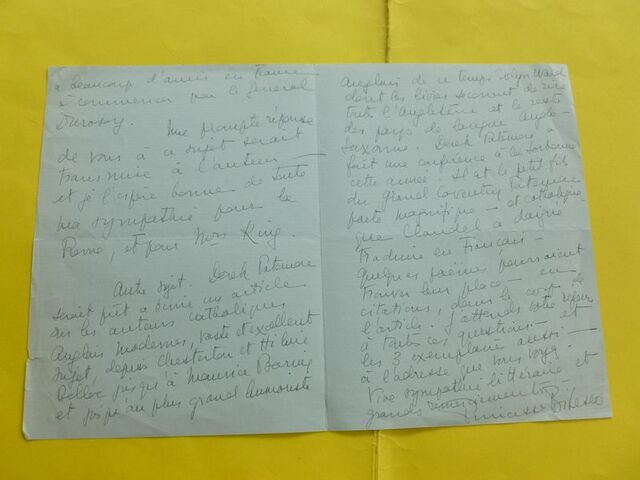 a beaucoup d'amis en France
à commencer par le General
Une prompte réponse
de vous à ce sujet serait
transmise à l'auteur
et je l'espère bonne de toute
ma sympathie pour la
et pour Mrs King.
Autre sujet. Derek Patmore
serait prêt à écrire un article
sur les auteurs catholiques
Anglais modernes, vaste et excellent
sujet, depuis Chesterton et Hilaire
Belloc jusqu'à Maurice Baring
et jusqu'au plus grand humoriste
Anglais de ce temps Evelyn Waugh
dont les livres secouent de rire
toute l'Angleterre et le reste
des pays de langue Anglo-
Saxonne. Derek Patmore a
fait une conférence à la Sorbonne
cette année. Il est le petit fils
du Grand Coventry Patmore
poète magnifique – et catholique
que Claudel a daigné
traduire en Français –
quelques poèmes pourraient
trouver leur place – en
citations, dans le corps de
l'article. J'attends votre réponse
à toutes ces questions – et
les 3 exemplaires aussi –
à l'adresse que vous voyez.
Vive sympathie littéraire et
grands remerciements –
Bibesco